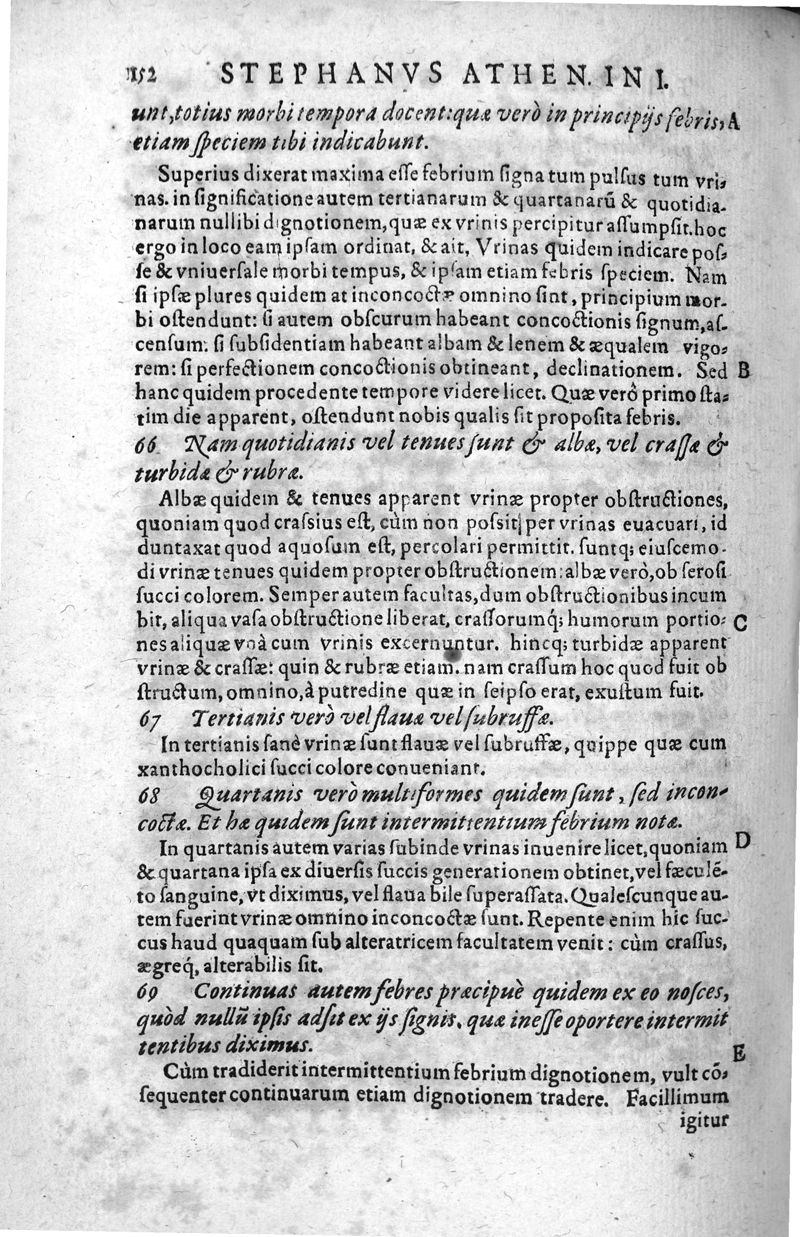 152 STEPHANVS ATHEN. IN I.
unt, totius morbi tempora docent: quæ verò in principijs febris, A
etiam ſpeciem tibi indicabunt.
Superius dixerat maxima eſſe febrium ſigna tum pulſus tum vri-
nas. in ſignificatione autem tertianarum & quartanarū & quotidia-
narum nullibi dignotionem, quæ ex vrinis percipitur aſſumpſit. hoc
ergo in loco eam ipſam ordinat, & ait, Vrinas quidem indicare poſ-
ſe & vniuerſale morbi tempus, & ipſam etiam febris ſpeciem. Nam
ſi ipſæ plures quidem at inconcoctæ omnino ſint, principium mor-
bi oſtendunt: ſi autem obſcurum habeant concoctionis ſignum, aſ-
cenſum: ſi ſubſidentiam habeant albam & lenem & æqualem vigo-
rem: ſi perfectionem concoctionis obtineant, declinationem. Sed B
hanc quidem procedente tempore videre licet. Quæ verò primo ſta-
tim die apparent, oſtendunt nobis qualis ſit propoſita febris.
66 Nam quotidianis vel tenues ſunt & albæ, vel craſſæ &
turbidæ & rubræ.
Albæ quidem & tenues apparent vrinæ propter obſtructiones,
quoniam quod craſsius eſt, cùm non poſsit per vrinas euacuari, id
duntaxat quod aquoſum eſt, percolari permittit. ſuntq; eiuſcemo-
di vrinæ tenues quidem propter obſtructionem: albæ verò, ob ſeroſi
ſucci colorem. Semper autem facultas, dum obſtructionibus incum
bit, aliqua vaſa obſtructione liberat, craſſorumq́; humorum portio- C
nes aliquæ vnà cum vrinis excernuntur. hincq; turbidæ apparent
vrinæ & craſſæ: quin & rubræ etiam. nam craſſum hoc quod fuit ob
ſtructum, omnino, à putredine quæ in ſeipſo erat, exuſtum fuit.
67 Tertianis verò vel flauæ vel ſubruffæ.
In tertianis ſanè vrinæ ſunt flauæ vel ſubruffæ, quippe quæ cum
xanthocholici ſucci colore conueniant.
68 Quartanis verò multiformes quidem ſunt, ſed incon-
coctæ. Et hæ quidem ſunt intermittentium febrium notæ.
In quartanis autem varias ſubinde vrinas inuenire licet, quoniam D
& quartana ipſa ex diuerſis ſuccis generationem obtinet, vel fæculē-
to ſanguine, vt diximus, vel flaua bile ſuperaſſata. Qualeſcunque au-
tem fuerint vrinæ omnino inconcoctæ ſunt. Repente enim hic ſuc-
cus haud quaquam ſub alteratricem facultatem venit: cùm craſſus,
ægreq́, alterabilis ſit.
69 Continuas autem febres præcipuè quidem ex eo noſces,
quòd nullū ipſis adſit ex ijs ſignis, quæ ineſſe oportere intermit
tentibus diximus.
E
Cùm tradiderit intermittentium febrium dignotionem, vult cō-
ſequenter continuarum etiam dignotionem tradere. Facillimum
igitur